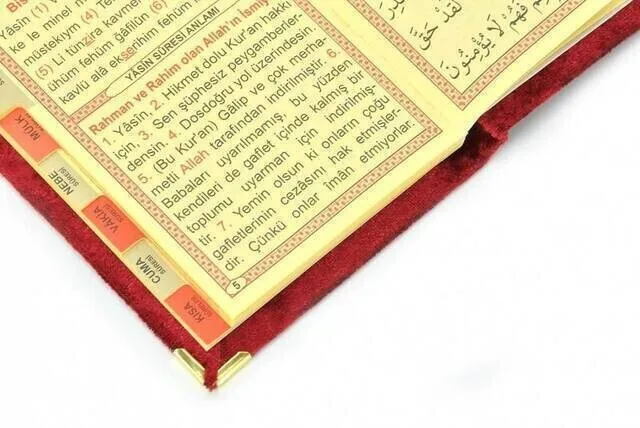 Yâsîn (1)
(5) Li tünzira kavmen
ühüm fehüm ğâfilûn (6)
YASİN SÛRESİ ANLAMI
Rahman ve Rahim olan Allah'ın ismiy
1. Yâsîn, 2. Hikmet dolu Kur'an hakkı
için, 3. Sen şüphesiz peygamberler-
densin. 4. Dosdoğru yol üzerindesin.
5. (Bu Kur'an) Gâlip ve çok merha-
metli Allah tarafından indirilmiştir. 6.
Babaları uyarılmamış, bu yüzden
kendileri de gaflet içinde kalmış bir
toplumu uyarman için indirilmiş-
tir. 7. Yemin olsun ki onların çoğu
gafletlerinin cezasını hak etmişler-
dir. Çünkü onlar imân etmiyorlar.
5
لَقَدْ حَقَّ
فَهُمْ لَا يُؤْمِنُونَ
MÜLK
SÛRESİ
NEBE
SÛRESİ
VÂKIA
SÛRESİ
CUMA
SÛRESİ
KISA
SÛRELER